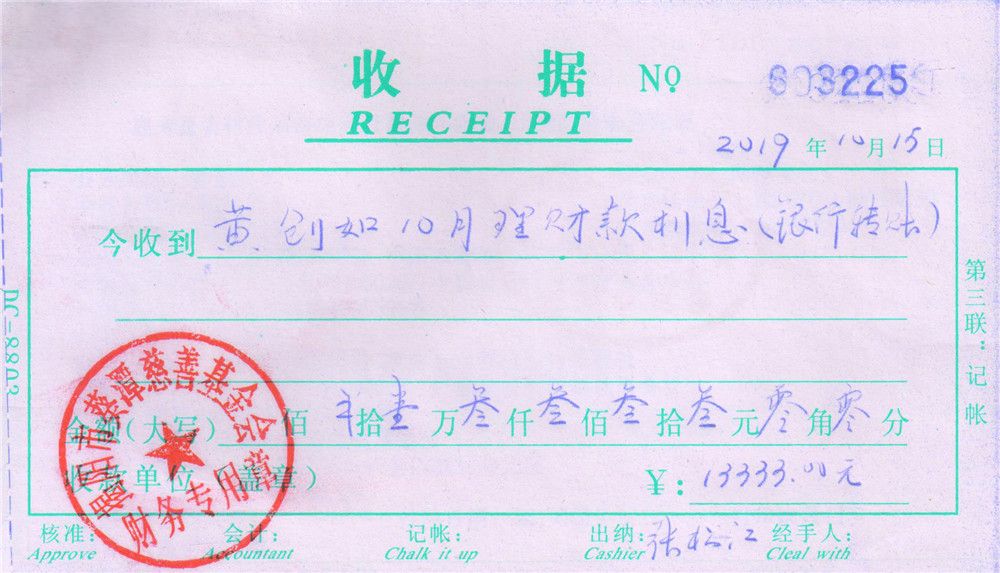 收 据 №003225
RECEIPT
2019年10月15日
今收到 黄创如10月理财款利息(银行转账)
金额(大写) 佰 拾壹万叁仟叁佰叁拾叁元零角零分
收款单位(盖章) ¥:13333.00元
核准: 会计: 记帐: 出纳:张松江 经手人:
Approve Accountant Chalk it up Cashier Cleal with
第三联:记帐
DC-8803
市蔡潭慈善基金会
财务专用章